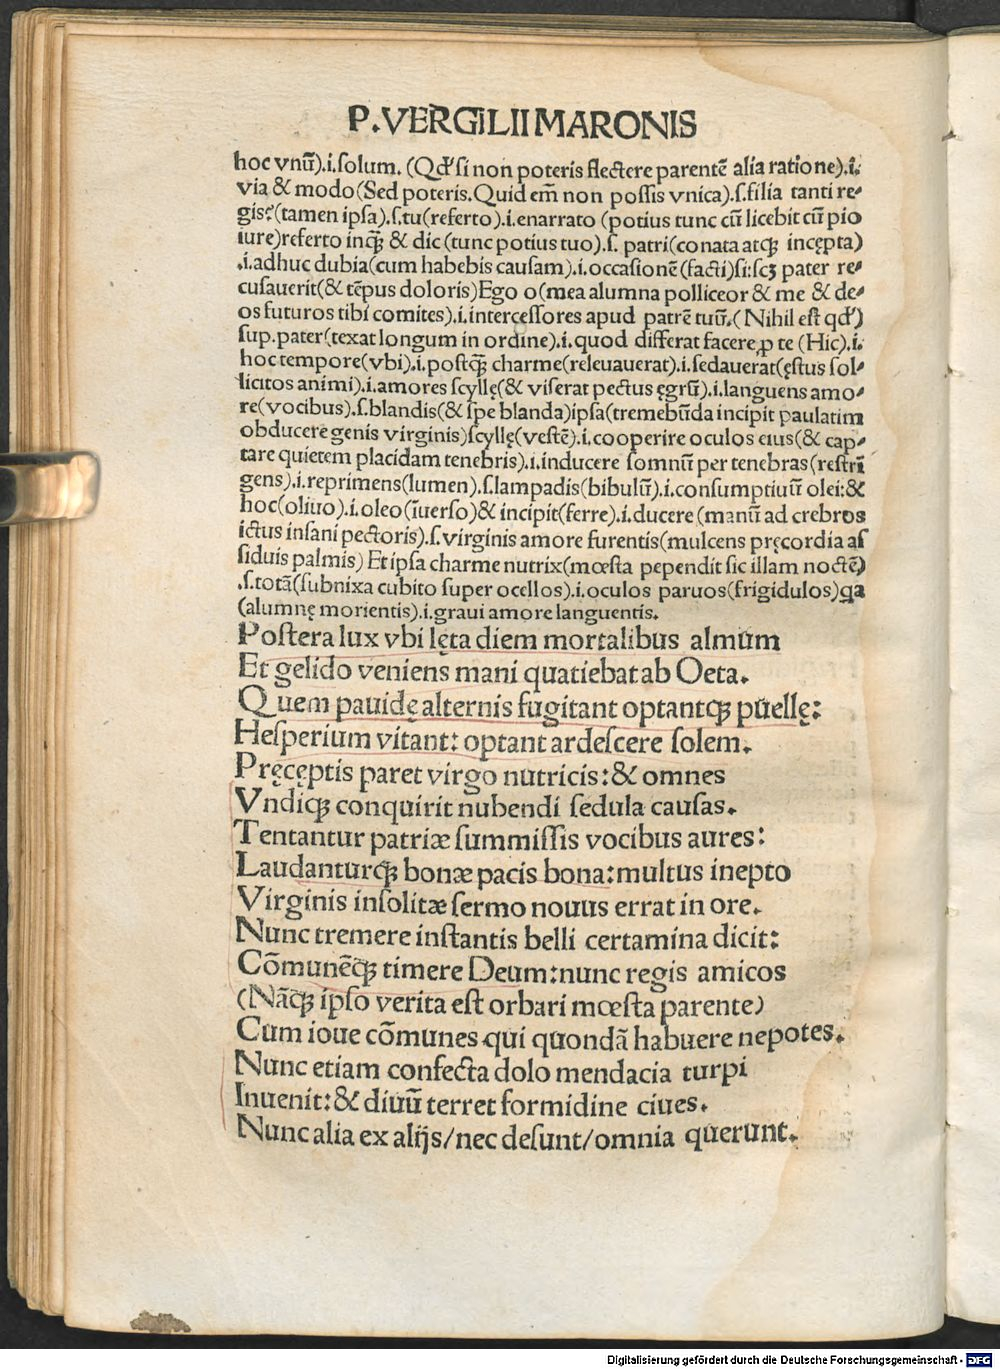 P.VERGILII MARONIS
hoc vnū).i.ſolum. (Qđ ſi non poteris flectere parentē alia ratione).i.
via & modo(Sed poteris.Quid em̄ non poſſis vnica).ſ.filia tanti re⸗
gis?(tamen ipſa).ſ.tu(referto).i.enarrato (potius tunc cū licebit cū pio
iure)referto inqꝫ & dic (tunc potius tuo).ſ. patri(conata atqꝫ incępta)
.i.adhuc dubia(cum habebis cauſam).i.occaſionē(facti)ſi:ſcꝫ pater re⸗
cuſauerit(& tēpus doloris)Ego o(mea alumna polliceor & me & de⸗
os futuros tibi comites).i.interceſſores apud patrē tuū.(Nihil eſt qđ)
ſup.pater(texat longum in ordine).i.quod differat facere ꝓ te (Hic).i.
hoc tempore(vbi).i.poſtqꝫ charme(releuauerat).i.ſedauerat(ęſtus ſol⸗
licitos animi).i.amores ſcyllę(& viſerat pectus ęgrū).i.languens amo⸗
re(vocibus).ſ.blandis(& ſpe blanda)ipſa(tremebūda incipit paulatim
obducere genis virginis)ſcyllę(veſtē).i.cooperire oculos eius(& cap⸗
tare quietem placidam tenebris).i.inducere ſomnū per tenebras(reſtrī
gens).i.reprimens(lumen).ſ.lampadis(bibulū).i.conſumptiuū olei:&
hoc(oliuo).i.oleo(īuerſo)& incipit(ferre).i.ducere(manū ad crebros
ictus inſani pectoris).ſ.virginis amore furentis(mulcens pręcordia aſ
ſiduis palmis) Et ipſa charme nutrix(mœſta pependit ſic illam noctē)
.ſ.totā(ſubnixa cubito ſuper ocellos).i.oculos paruos(frigidulos)qa
(alumnę morientis).i.graui amore languentis.
Poſtera lux vbi lęta diem mortalibus almum
Et gelido veniens mani quatiebat ab Oeta.
Quem pauidę alternis fugitant optantqꝫ puellę:
Heſperium vitant: optant ardeſcere ſolem.
Pręcęptis paret virgo nutricis:& omnes
Vndiqꝫ conquirit nubendi ſedula cauſas.
Tentantur patriæ ſummiſſis vocibus aures:
Laudanturqꝫ bonæ pacis bona:multus inepto
Virginis inſolitæ ſermo nouus errat in ore.
Nunc tremere inſtantis belli certamina dicit:
Cōmunēqꝫ timere Deum:nunc regis amicos
(Nāqꝫ ipſo verita eſt orbari mœſta parente)
Cum ioue cōmunes qui quondā habuere nepotes.
Nunc etiam confecta dolo mendacia turpi
Inuenit:& diuū terret formidine ciues.
Nunc alia ex alijs/nec deſunt/omnia querunt.
Digitalisierung gefördert durch die Deutsche Forschungsgemeinschaft - DFG